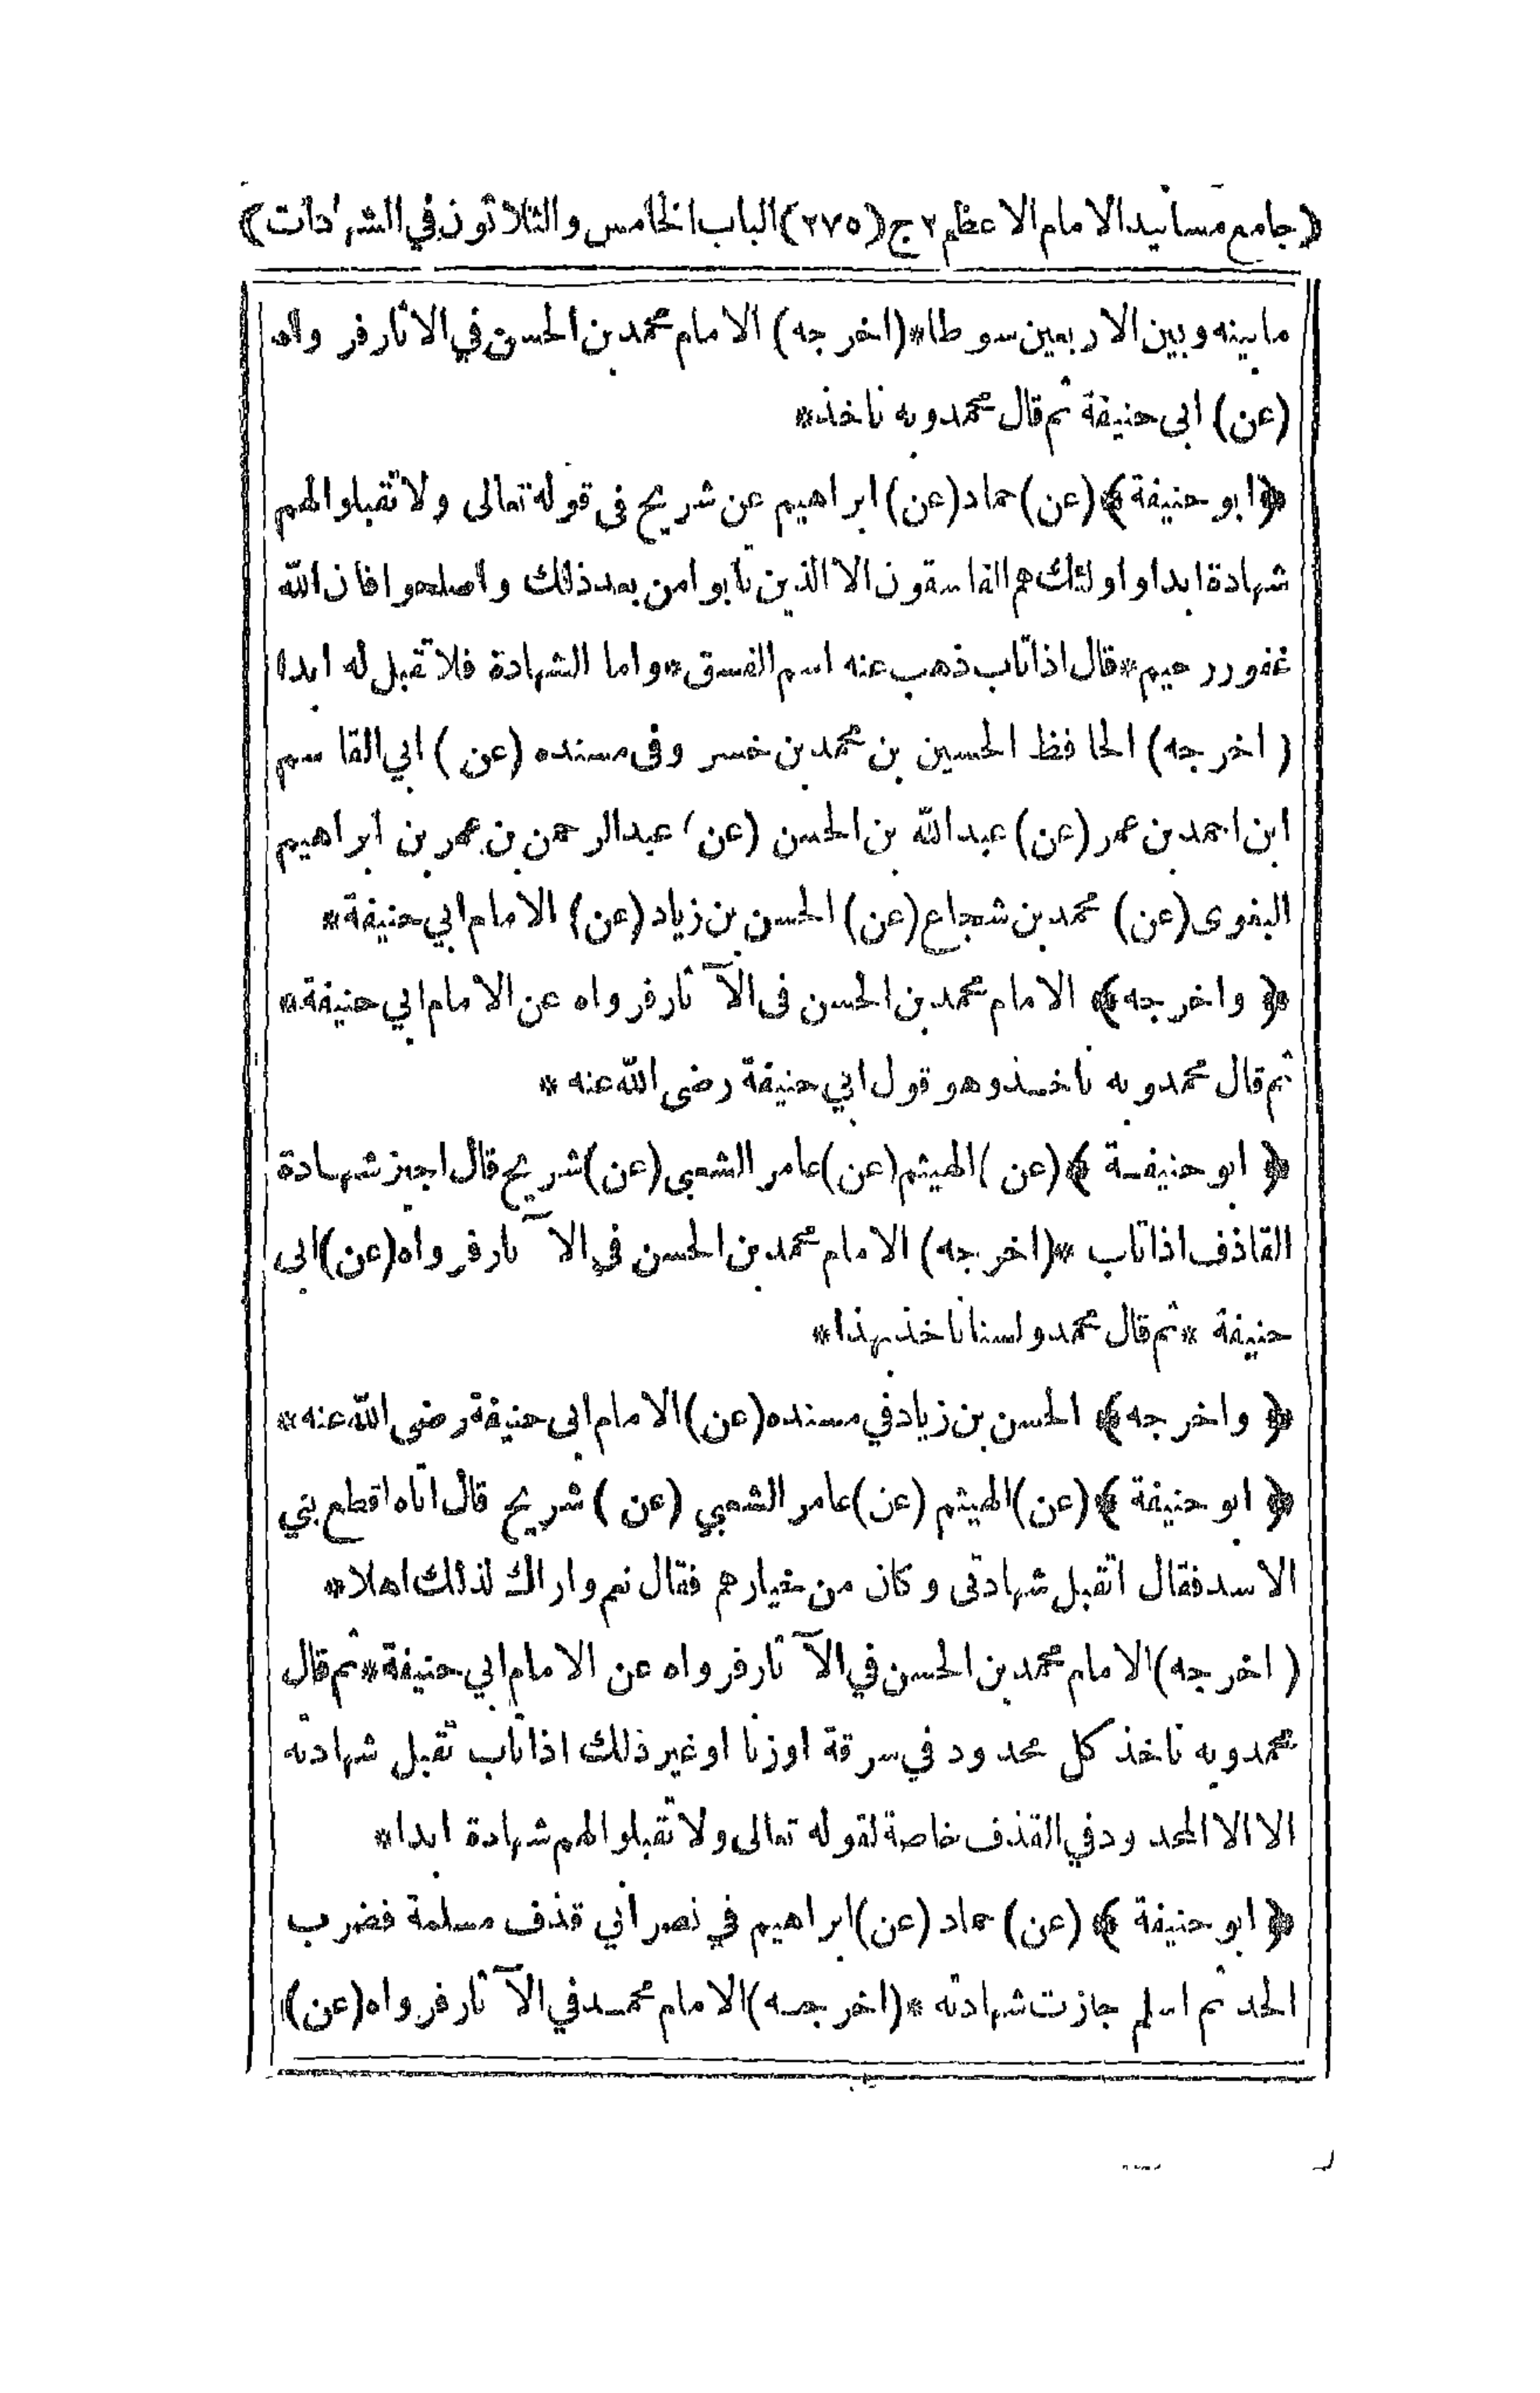 (جامع مسانيد الامام الاعظم ج٢ (٢٧٥) الباب الخامس والثلاثون في الشهادات)
مابينه وبين الاربعين سوطا*(اخرجه) الامام محمد بن الحسن في الاثار فرواه
(عن) ابى حنيفة ثم قال محمد وبه ناخذ*
﴿ابو حنيفة﴾ (عن) حماد (عن) ابراهيم عن شريح فى قوله تعالى ولا تقبلوا لهم
شهادة ابدا واولئك هم الفاسقون الا الذين تابوا من بعد ذلك واصلحوا فان الله
غفور رحيم*قال اذا تاب ذهب عنه اسم الفسق*واما الشهادة فلا تقبل له ابدا
(اخرجه) الحافظ الحسين بن محمد بن خسر وفى مسنده (عن) ابي القاسم
ابن احمد بن عمر (عن) عبد الله بن الحسن (عن) عبد الرحمن بن عمر بن ابراهيم
البغوى (عن) محمد بن شجاع (عن) الحسن بن زياد (عن) الامام ابي حنيفة*
﴿واخرجه﴾ الامام محمد بن الحسن فى الآثار فرواه عن الامام ابي حنيفة*
ثم قال محمد وبه ناخذ وهو قول ابي حنيفة رضى الله عنه *
﴿ابو حنيفة﴾ (عن) الهيثم (عن) عامر الشعبى (عن) شريح قال اجيز شهادة
القاذف اذا تاب *(اخرجه) الامام محمد بن الحسن في الآثار فرواه (عن) ابى
حنيفة *ثم قال محمد ولسنا ناخذ بهذا*
﴿واخرجه﴾ الحسن بن زياد في مسنده (عن) الامام ابى حنيفة رضى الله عنه*
﴿ابو حنيفة﴾ (عن) الهيثم (عن) عامر الشعبي (عن) شريح قال اتاه اقطع بني
الاسد فقال اتقبل شهادتى وكان من خيارهم فقال نعم واراك لذلك اهلا*
(اخرجه) الامام محمد بن الحسن في الآثار فرواه عن الامام ابي حنيفة*ثم قال
محمد وبه ناخذ كل محدود في سرقة اوزنا او غير ذلك اذا تاب تقبل شهادته
الا الا المحدود في القذف خاصة لقوله تعالى ولا تقبلوا لهم شهادة ابدا*
﴿ابو حنيفة﴾ (عن) حماد (عن) ابراهيم في نصراني قذف مسلمة فضرب
الحد ثم اسلم جازت شهادته *(اخرجه) الامام محمد في الآثار فرواه (عن)